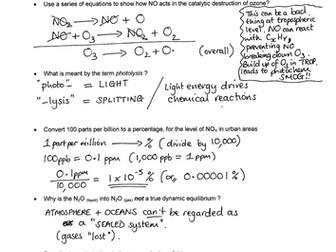 • Use a series of equations to show how NO acts in the catalytic destruction of ozone?
NO₂ → NO + O
NO + O₃ → NO₂ + O₂
O₃ → O₂ + O· (overall)
This can be a bad
thing at tropospheric
level. NO can react
with CxHy,
preventing NO
breaking down O₃.
Build up of O₃ in TROP.
leads to photochem
SMOG!!
• What is meant by the term photolysis?
"photo" = LIGHT
"-lysis" = SPLITTING
Light energy drives
chemical reactions
• Convert 100 parts per billion to a percentage, for the level of NO₂ in urban areas
1 part per million → % (divide by 10,000)
100ppb = 0.1 ppm (1,000 ppb = 1 ppm)
0.1 ppm / 10,000 = 1 × 10⁻⁵ % (or 0.00001 %)
• Why is the N₂O (liquid) into N₂O (gas) not a true dynamic equilibrium?
ATMOSPHERE + OCEANS can't be regarded as
a "SEALED system".
(gases "lost").